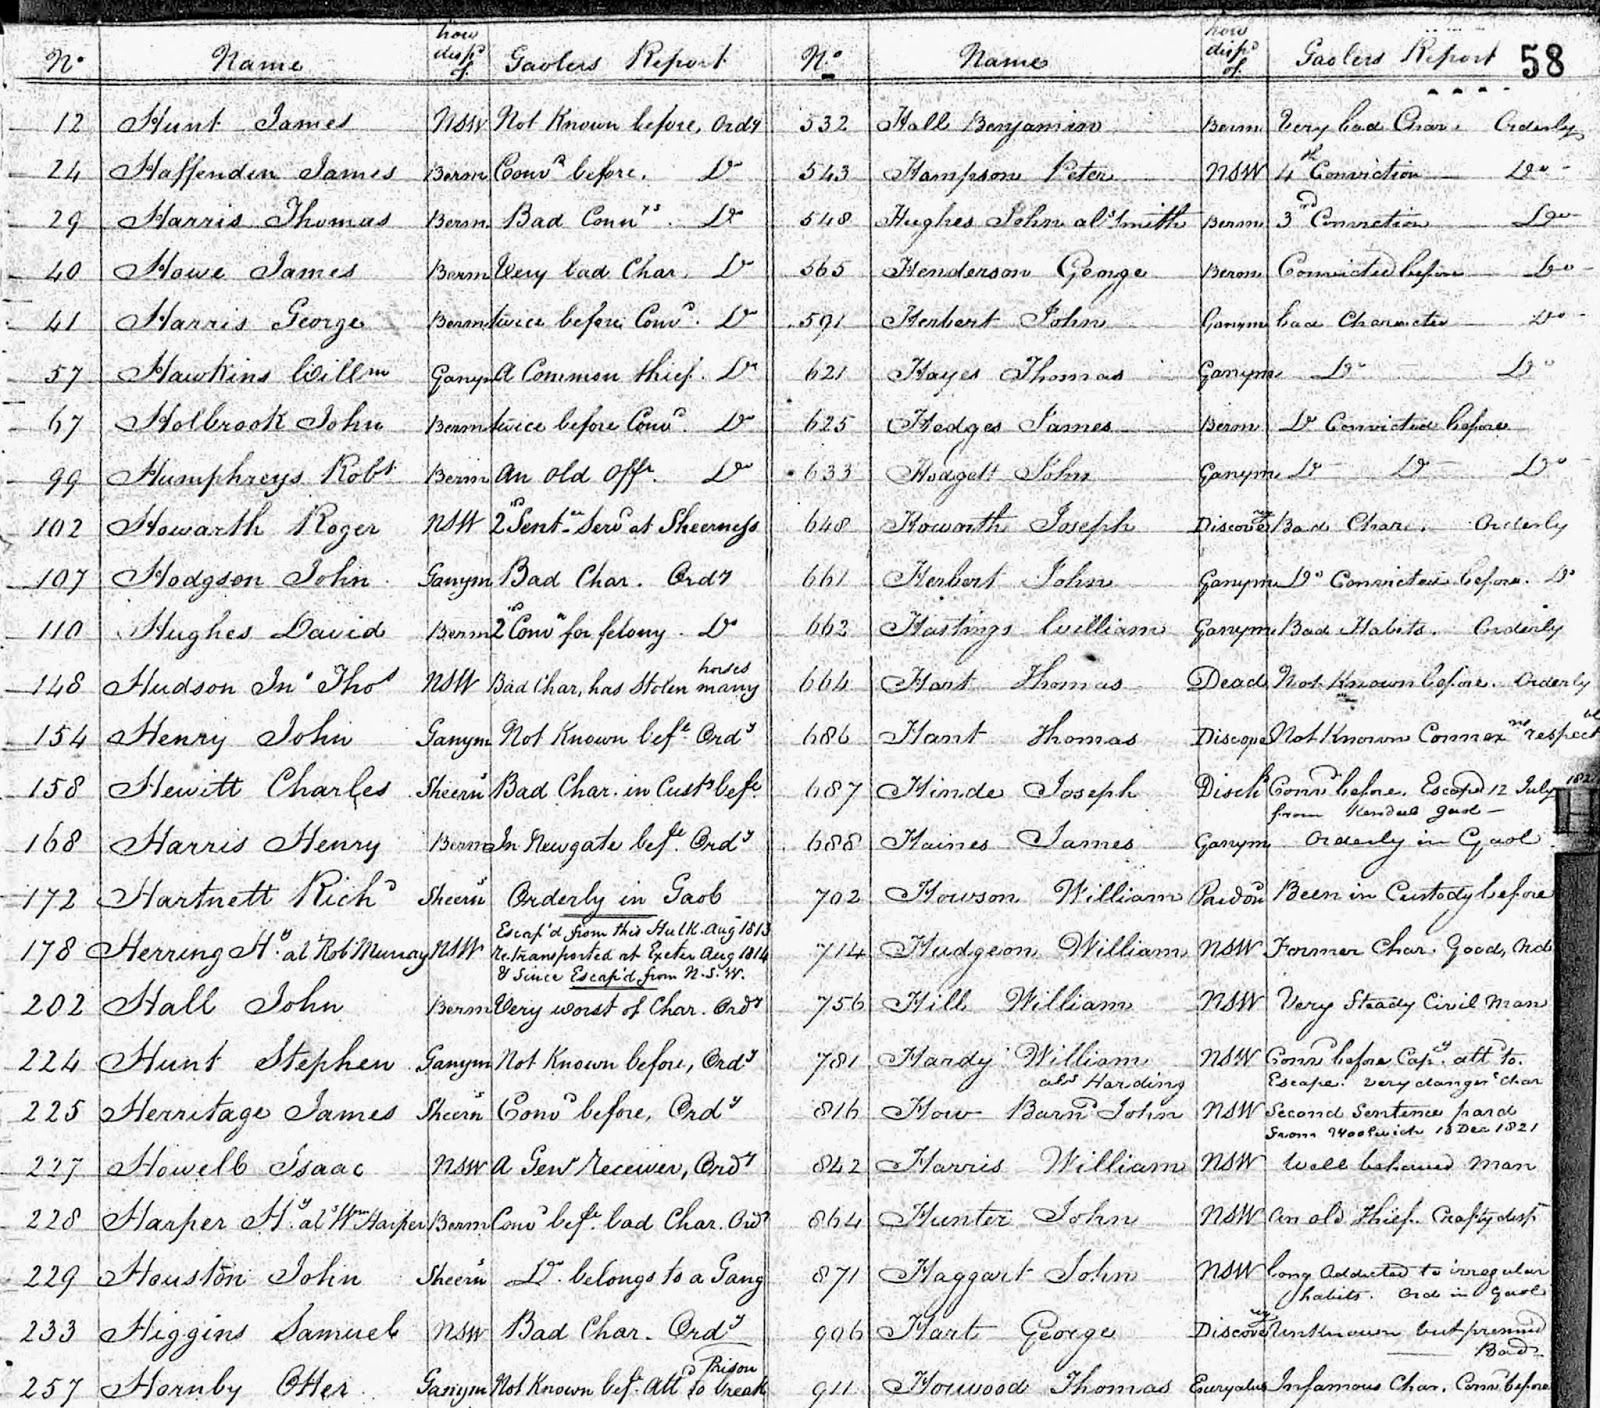 No. Name how disp.d of. Gaolers Report
12 Hunt James NSW Not Known before, Ordy
24 Haffenden James Berm Conv.d before. Do
29 Harris Thomas Berm Bad Conn.ns. Do
40 Howe James Berm Very bad Char. Do
41 Harris George Berm twice before Conv.d. Do
57 Hawkins Will.m Ganym A Common thief. Do
67 Holbrook John Berm twice before Conv.d. Do
99 Humphreys Robt Berm An old Offr. Do
102 Howarth Roger NSW 2 Sent.ce Serv.d at Sheerness
107 Hodgson John Ganym Bad Char. Ordy
110 Hughes David Berm 2 Conv.n for felony. Do
148 Hudson Jn.o Tho.s NSW Bad Char, has Stolen many horses
154 Henry John Ganym Not Known bef.e Ord.y
158 Hewitt Charles Sheer.s Bad Char. in Cust.y bef.e
168 Harris Henry Berm In Newgate bef.e Ord.y
172 Hartnett Rich.d Sheer.s Orderly in Gaol
178 Herring H.y al Rob Murray NSW Escap'd from this Hulk Aug 1813
re.transported at Exeter Aug 1814
& Since Escap'd from N.S.W.
202 Hall John Berm Very worst of Char. Ord.y
224 Hunt Stephen Ganym Not Known before, Ord.y
225 Herritage James Sheer.s Conv.d before, Ord.y
227 Howell Isaac NSW A Gen.l receiver, Ord.y
228 Harper H.y al.s W.m Harper Berm Conv.d bef.e bad Char. Ord.y
229 Houston John Sheer.s Do. belongs to a Gang
233 Higgins Samuel NSW Bad Char. Ord.y
257 Hornby Otter Ganym Not Known bef. Att.d to break Prison
No. Name how disp.d of. Gaolers Report 58
532 Hall Benjamin Berm Very bad Char. Orderly
543 Hampson Peter NSW 4th Conviction Do
548 Hughes John al.s Smith Berm 3rd Conviction Do
565 Henderson George Berm Convicted before Do
591 Herbert John Ganym bad Character Do
621 Hayes Thomas Ganym Do Do
625 Hedges James Berm Do Convicted before
633 Hodgett John Ganym Do Do Do
648 Howorth Joseph Discovery Bad Char. Orderly
661 Herbert John Ganym Do Convicted before. Do
662 Hastings William Ganym Bad Habits. Orderly
664 Hart Thomas Dead Not Known before. Orderly
686 Hant Thomas Discove Not Known Connex.ns respect.bl
687 Hinde Joseph Disch Conv.d before. Escap.d 12 July 182
from Kendal gaol
688 Haines James Ganym Orderly in Gaol
702 Howson William Pardon Been in Custody before
714 Hudgeon William NSW Former Char. Good, Ord
756 Hill William NSW Very Steady Civil Man
781 Hardy William NSW Conv.d before Cap.y att to
als Harding Escape. very danger.s Char
816 How Barn.d John NSW Second Sentence pard
from Woolwich 18 Dec 1821
842 Harris William NSW Well behaved Man
864 Hunter John NSW An old thief. Crafty disp
871 Haggart John NSW long addicted to irregular
habits. Ord in Gaol
906 Hart George Discovery Unknown but presumed
Bad
911 Horwood Thomas Euryalus Infamous Char. Conv.d before